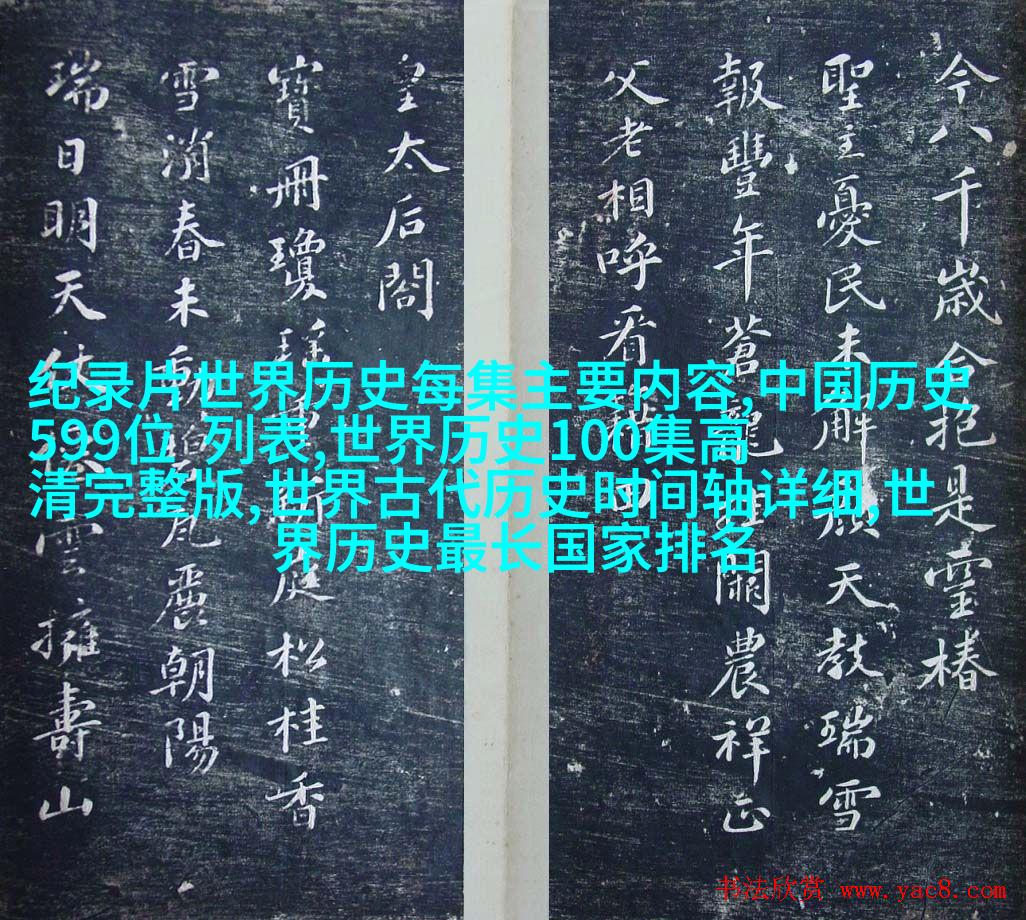 纪录片世界历史每集主要内容,中国历史
599位 列表,世界历史100集高
清完整版,世界古代历史时间轴详细,世
界历史最长国家排名
今八千歲合抱是靈椿
聖主憂民未解顏天教瑞雪
報豐年蒼龍掛闕農祥正
父老相呼看田
皇太后閣
寶冊瓊瑤庭松桂香
雪消春未動瓦麗朝陽
瑞日明天仗雲擁壽山
书法欣赏 www.yac8.com